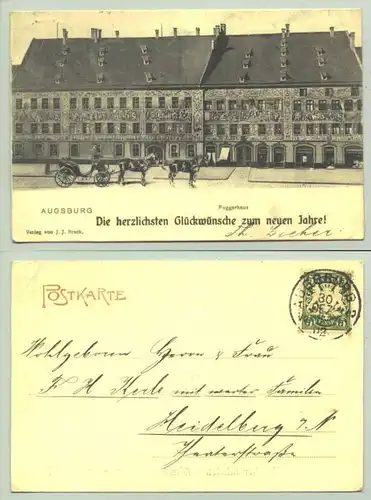 AUGSBURG
Fuggerhaus
Die herzlichsten Glückwünsche zum neuen Jahre!
Verlag von J. J. Brack.
Th.
POSTKARTE
30
DEZ
02
Wohlgeboren Herrn & Frau
F H mit werter Familie
Heidelberg a/N
Theaterstraße